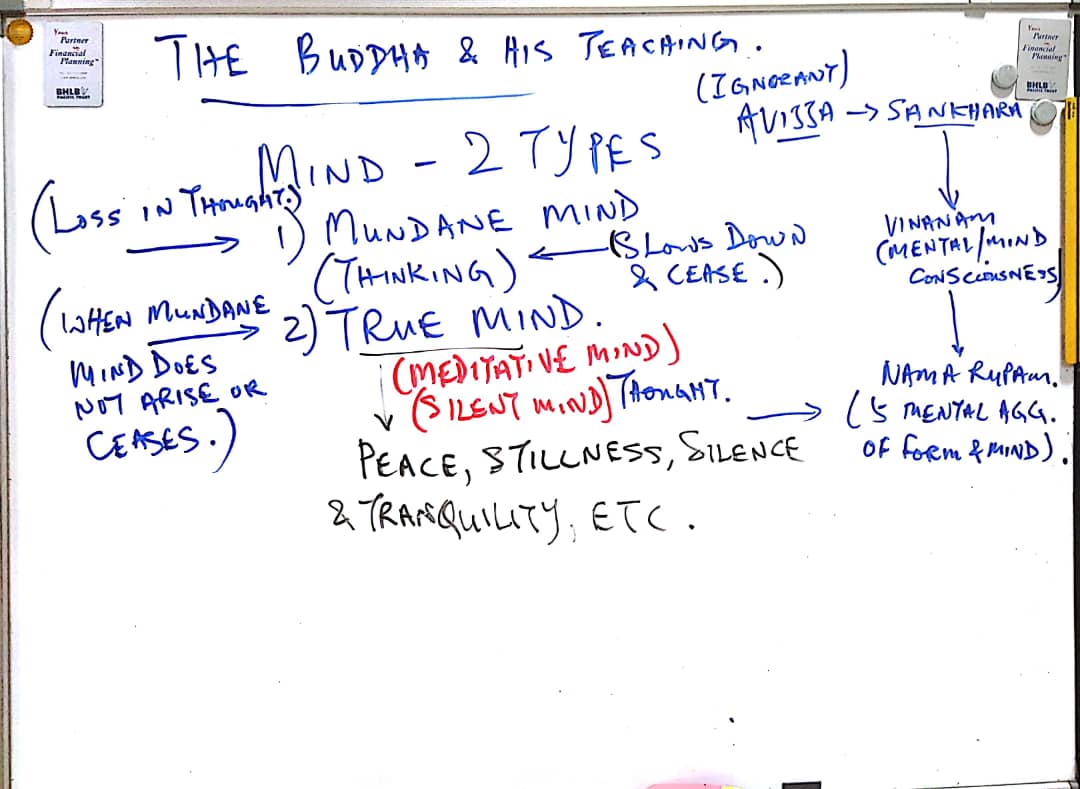 Your
Partner
in
Financial
Planning
BHLB
PACIFIC TRUST
THE BUDDHA & HIS TEACHING.
Your
Partner
in
Financial
Planning
BHLB
PACIFIC TRUST
(IGNORANT)
AVIJJA → SANKHARA
MIND - 2 TYPES
(LOSS IN THOUGHT.)
1) MUNDANE MIND
(THINKING)
(SLOWS DOWN
& CEASE.)
VINANAM
(MENTAL/MIND
CONSCIOUSNESS)
(WHEN MUNDANE
MIND DOES
NOT ARISE OR
CEASES.)
2) TRUE MIND.
(MEDITATIVE MIND)
(SILENT MIND) THOUGHT.
NAMA RUPAM.
(5 MENTAL AGG.
OF FORM & MIND).
PEACE, STILLNESS, SILENCE
& TRANQUILITY, ETC.